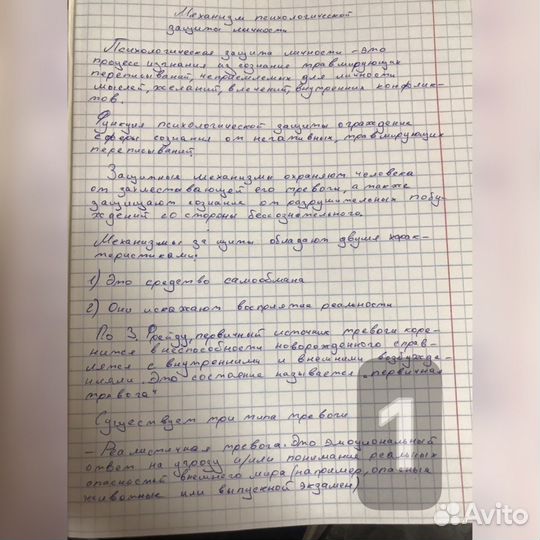 Механизм психологической
защиты личности
Психологическая защита личности - это
процесс изгнания из сознание травмирующих
переписываний, неприемлемых для личности
мыслей, желаний, влечений, внутренних конфлик-
тов.
Функция психологической защиты ограждение
сферы сознания от негативных, травмирующих
переписываний
Защитные механизмы охраняют человека
от захлестывающей его тревоги, а также
защищают сознание от разрушительных побу-
ждений со стороны бессознательного.
Механизмы за щиты обладают двумя харак-
теристиками:
1) Это средство самообмана
2) Они искажают восприятие реальности
По З. Фрейду, первичный источник тревоги коре-
нится в неспособности новорожденного справ-
ляется с внутренними и внешними возбужде-
ниями. Это состояние называется "первичная
тревога"
Существует три типа тревоги
- Реалистичная тревога. Это эмоциональный
ответ на угрозу и/или понимание реальных
опасностей внешнего мира (например, опасные
животные или выпускной экзамен)
1
Avito